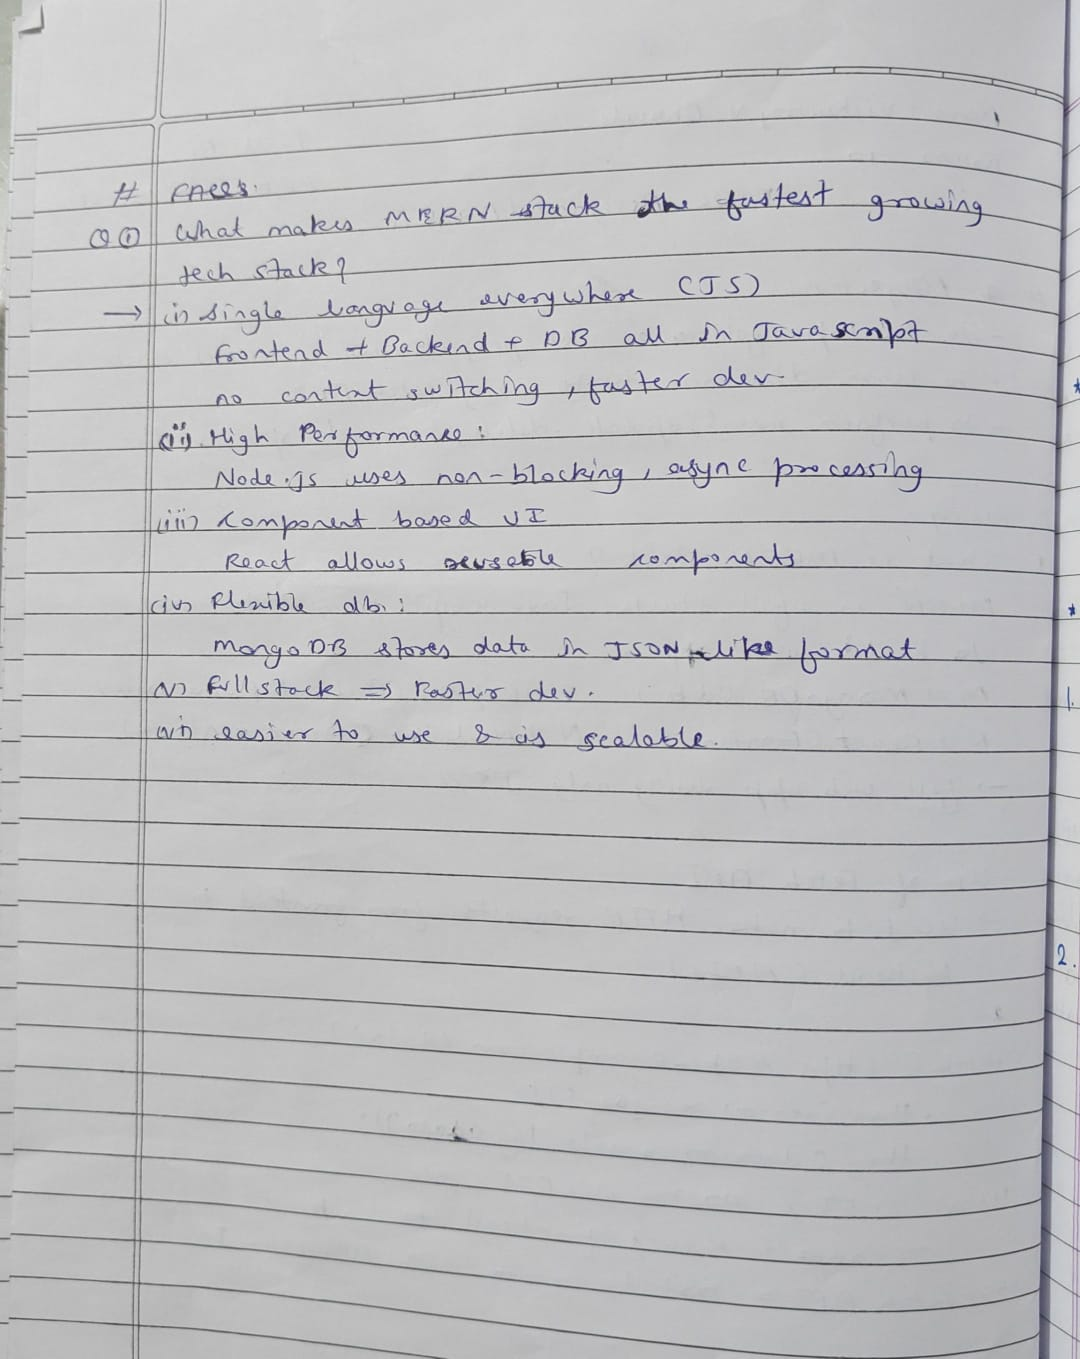 # FAQs.
Q ① What makes MERN stack the fastest growing
tech stack?
→ (i) single language everywhere (JS)
frontend + Backend + DB all in Javascript
no context switching, faster dev.
(ii) High Performance:
Node.js uses non-blocking, async processing
(iii) Component based UI
React allows reusable components
(iv) Flexible db.:
MongoDB stores data in JSON-like format
(v) full stack => Faster dev.
(vi) easier to use & is scalable.
*
*
1.
2.